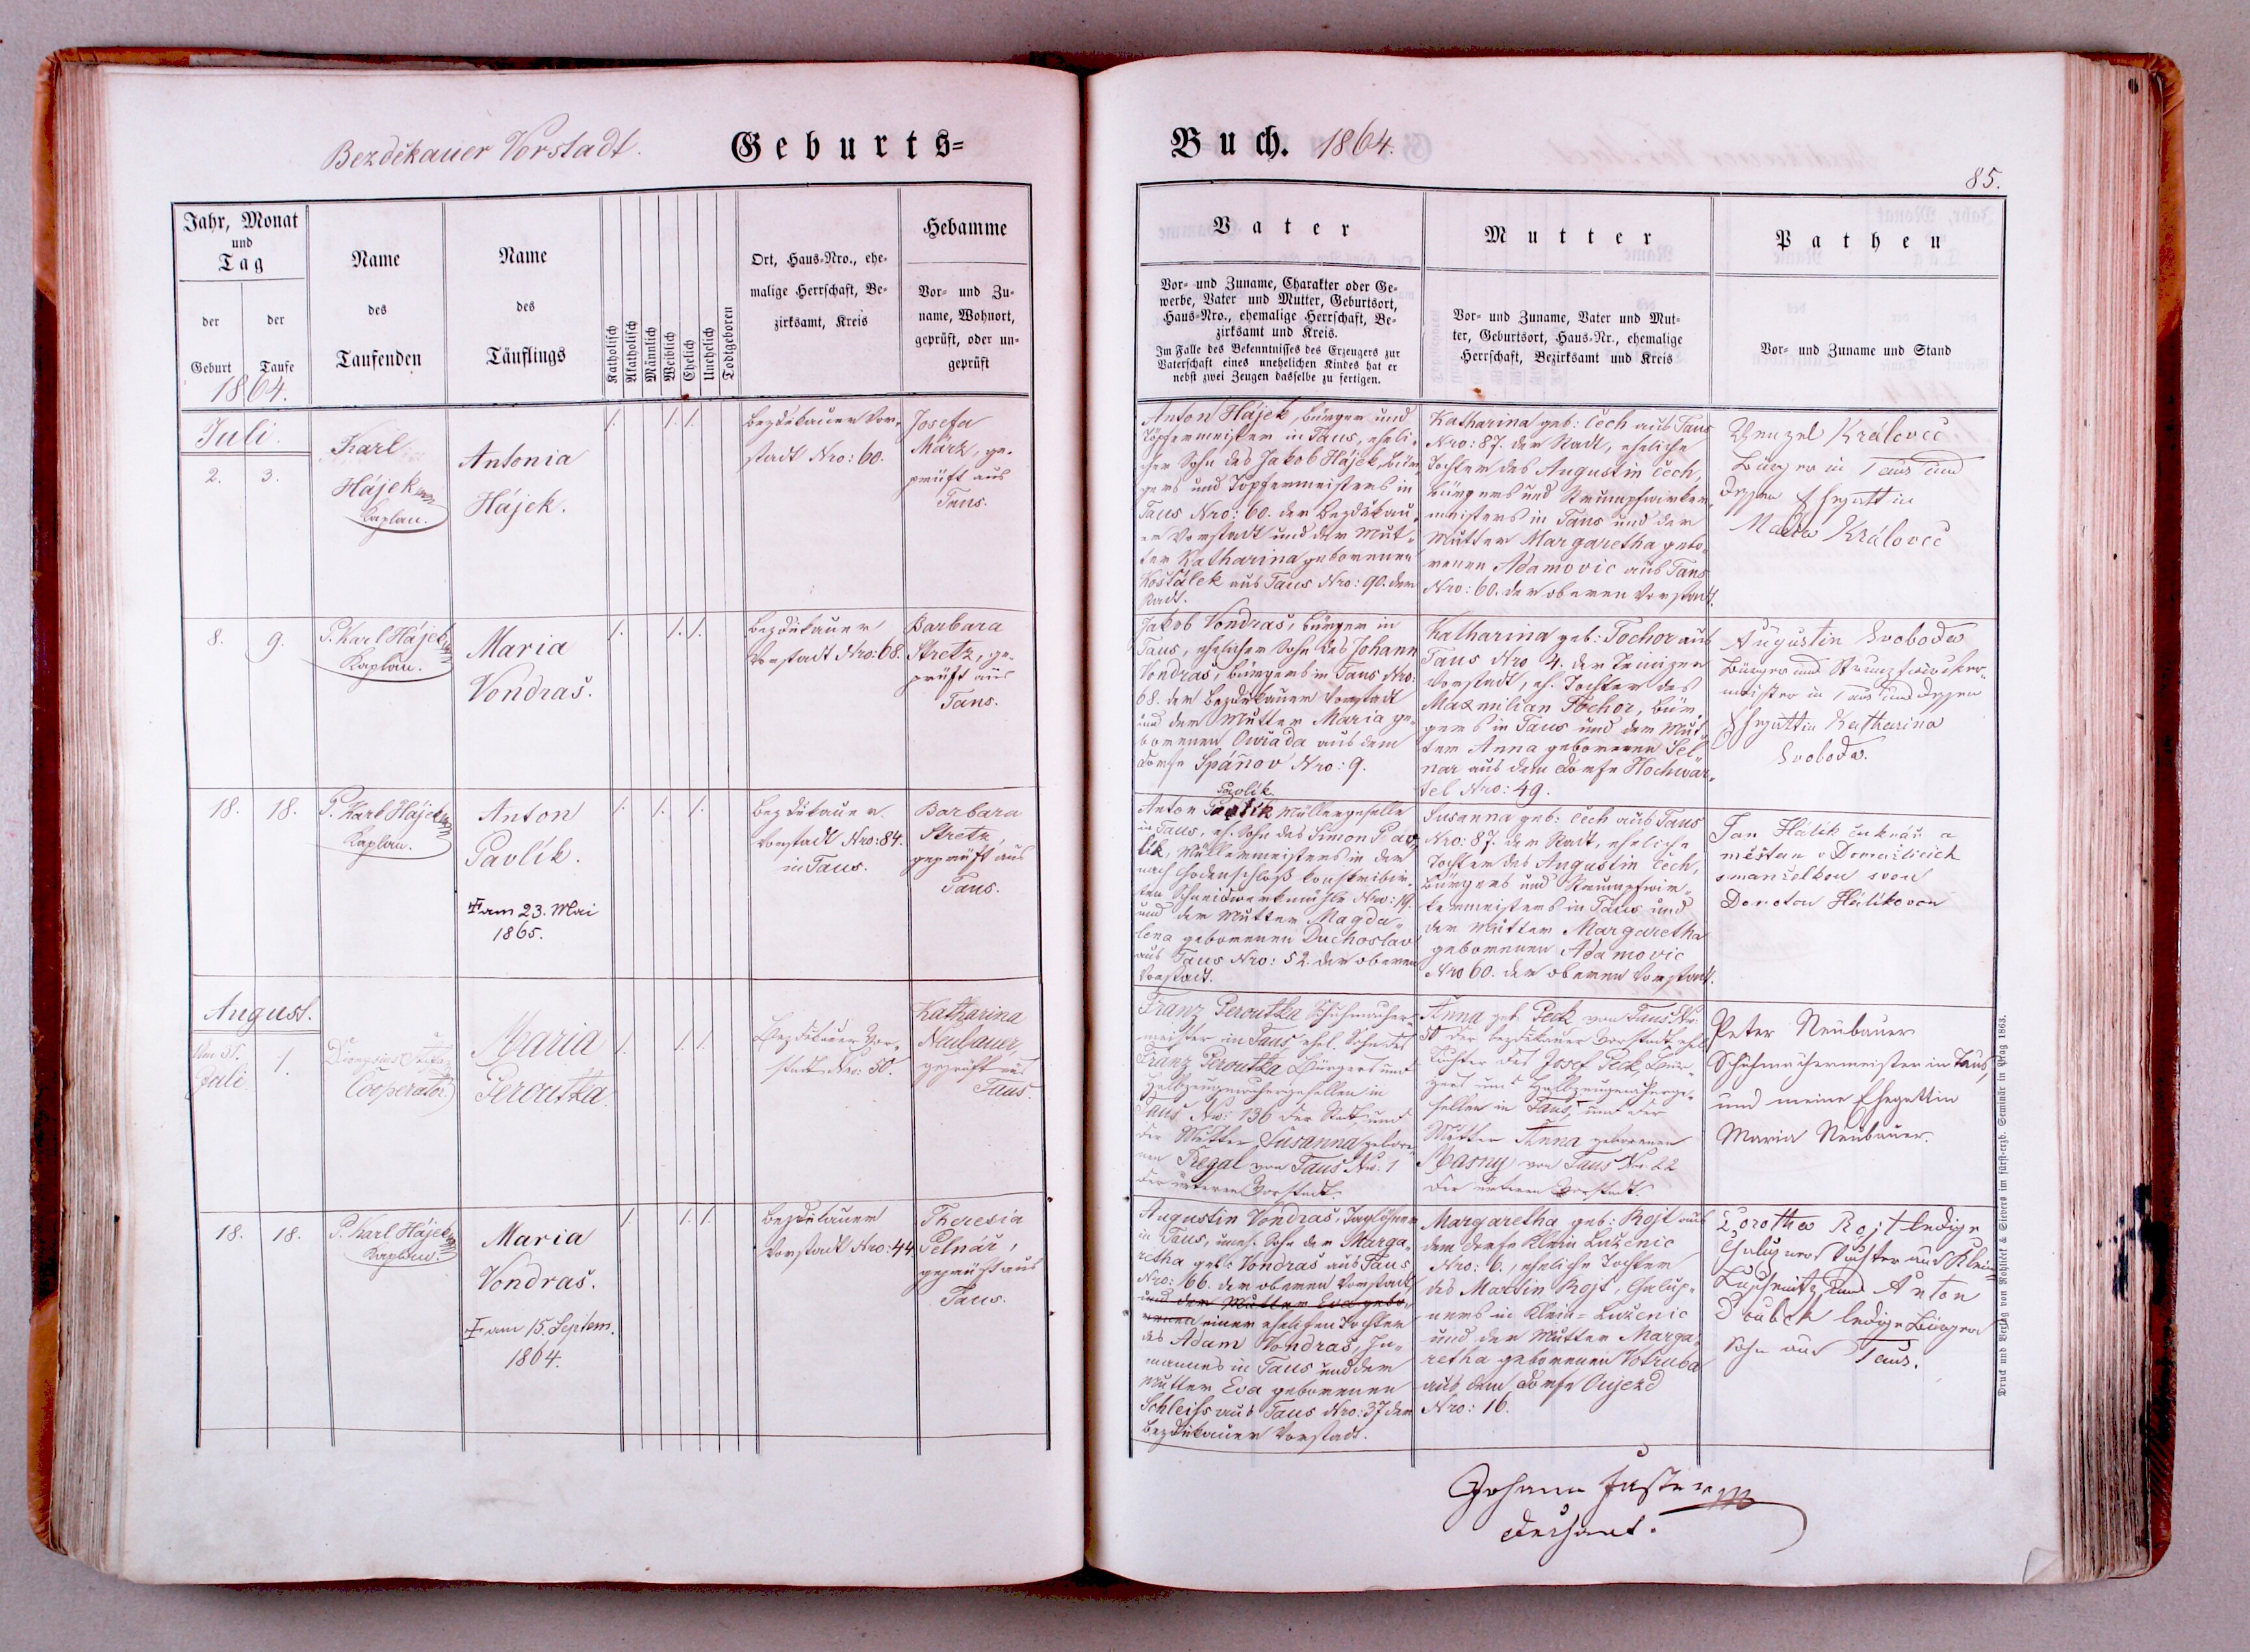 Bezděkauer Vorstadt.
Geburts=
Jahr, Monat
und
Tag
der
Geburt
der
Taufe
Name
des
Taufenden
Name
des
Täuflings
Katholisch
Akatholisch
Männlich
Weiblich
Ehelich
Unehelich
Todtgeboren
Ort, Haus=Nro., ehe=
malige Herrschaft, Be=
zirksamt, Kreis
Hebamme
Vor= und Zu=
name, Wohnort,
geprüft, oder un=
geprüft
1864.
Juli.
2. 3.
Karl
Hájek
Kaplan.
Antonia
Hájek.
1. 1. 1.
Bezděkauer Vor-
stadt Nro: 60.
Josefa
März, ge-
prüft aus
Taus.
8. 9.
P. Karl Hájek
Kaplan.
Maria
Vondraš.
1. 1. 1.
Bezděkauer
Vorstadt Nro: 68.
Barbara
Stretz, ge-
prüft aus
Taus.
18. 18.
P. Karl Hájek
Kaplan.
Anton
Pavlík.
† am 23. Mai
1865.
1. 1. 1.
Bezděkauer
Vorstadt Nro: 84.
in Taus.
Barbara
Stretz,
geprüft aus
Taus.
August.
Am 31.
Juli
1.
Dionysius
Cooperator
Maria
Peroutka.
1. 1. 1.
Bezděkauer Vor-
stadt Nro: 50.
Katharina
Neubauer,
geprüft aus
Taus.
18. 18.
P. Karl Hájek
Kaplan.
Maria
Vondraš.
† am 15. Septem.
1864.
1. 1. 1.
Bezděkauer
Vorstadt Nro: 44
Theresia
Pelnář,
geprüft aus
Taus.
Buch. 1864.
85.
Vater
Vor= und Zuname, Charakter oder Ge=
werbe, Vater und Mutter, Geburtsort,
Haus=Nro., ehemalige Herrschaft, Be=
zirksamt und Kreis.
Im Falle des Bekenntnisses des Erzeugers zur
Vaterschaft eines unehelichen Kindes hat er
nebst zwei Zeugen dasselbe zu fertigen.
Mutter
Vor= und Zuname, Vater und Mut=
ter, Geburtsort, Haus=Nr., ehemalige
Herrschaft, Bezirksamt und Kreis
Pathen
Vor= und Zuname und Stand
Anton Hájek, Bürger und
Töpfermeister in Taus, eheli-
cher Sohn des Jakob Hájek, Bür-
gers und Töpfermeisters in
Taus Nro: 60. der Bezděkau-
er Vorstadt und der Mut-
ter Katharina geborenen
Košťálek aus Taus Nro: 90. der
Stadt.
Katharina geb: Čech aus Taus
Nro: 87. der Stadt, eheliche
Tochter des Augustin Čech,
Bürgers und Strumpfwirker-
meisters in Taus und der
Mutter Margaretha gebo-
renen Adamovic aus Taus
Nro: 60. der oberen Vorstadt.
Wenzel Královec
Bürger in Taus und
dessen Ehegattin
Maria Královec
Jakob Vondraš, Bürger in
Taus, ehelicher Sohn des Johann
Vondraš, Bürgers in Taus Nro:
68. der Bezděkauer Vorstadt
und der Mutter Maria ge-
borenen Ouřada aus dem
Dorfe Spáňov Nro: 9.
Katharina geb: Tochor aus
Taus Nro 4. der Teinizer
Vorstadt, eh. Tochter des
Maxmilian Tochor, Bür-
gers in Taus und der Mut-
ter Anna geborenen Sel
nar aus dem Dorfe Hochwar-
tel Nro: 49.
Augustin Svoboda
Bürger und Strumpfwirker-
meister in Taus und dessen
Ehegattin Katharina
Svoboda.
Pavlík
Anton Müllergeselle
in Taus, eh. Sohn des Simon Pav
lík, Müllermeisters in der
nach Chodenschloß konskribir-
ten Schneidwerkmühle Nro: 19.
und der Mutter Magda-
lena geborenen Duchoslav
aus Taus Nro: 52. der oberen
Vorstadt.
Susanna geb: Čech aus Taus
Nro: 87. der Stadt, eheliche
Tochter des Augustin Čech,
Bürgers und Strumpfwir-
kermeisters in Taus und
der Mutter Margaretha
geborenen Adamovic
Nro 60. der oberen Vorstadt.
Jan Hálík cukrář a
měštan v Domažlicích
s manželkou svou
Dorotou Hálíkovou
Franz Peroutka Schuhmacher-
meister in Taus ehel. Sohn des
Franz Peroutka Bürgers und
Halbzeugmachergesellen in
Taus Nro: 136 der Stadt und
der Mutter Susanna gebore-
nen Regal von Taus Nro: 1
der unteren Vorstadt.
Anna geb. Peck von Taus Nro
50 der bezděkauer Vorstadt ehel.
Tochter des Josef Peck, Bür-
gers und Halbzeugmacherge-
sellen in Taus, und der
Mutter Anna geborenen
Masny von Taus Nro. 22
der unteren Vorstadt.
Peter Neubauer
Schuhmachermeister in Taus,
und meine Ehegattin
Maria Neubauer.
Augustin Vondraš, Taglöhner
in Taus, uneh. Sohn der Marga-
retha geb: Vondraš aus Taus
Nro: 66. der oberen Vorstadt
und der Mutter Eva gebo-
renen einer ehelichen Tochter
des Adam Vondraš, In-
mannes in Taus und der
Mutter Eva geborenen
Schleiss aus Taus Nro: 37 der
Bezděkauer Vorstadt.
Margaretha geb: Rojt aus
dem Dorfe Klein Luženic
Nro: 6., eheliche Tochter
des Martin Rojt, Chalup-
ners in Klein=Luženic
und der Mutter Marga-
retha geborenen Votruba
aus dem Dorfe Oujezd
Nro: 16.
Dorothea Rojt ledige
Chalupners Tochter aus Klein=
und Anton
ledige Bürgers
Sohn aus Taus.
Johann
Dechant.
Druck und Verlag von Rohliček & Sievers im fürst=erzb. Seminär in Prag 1863.